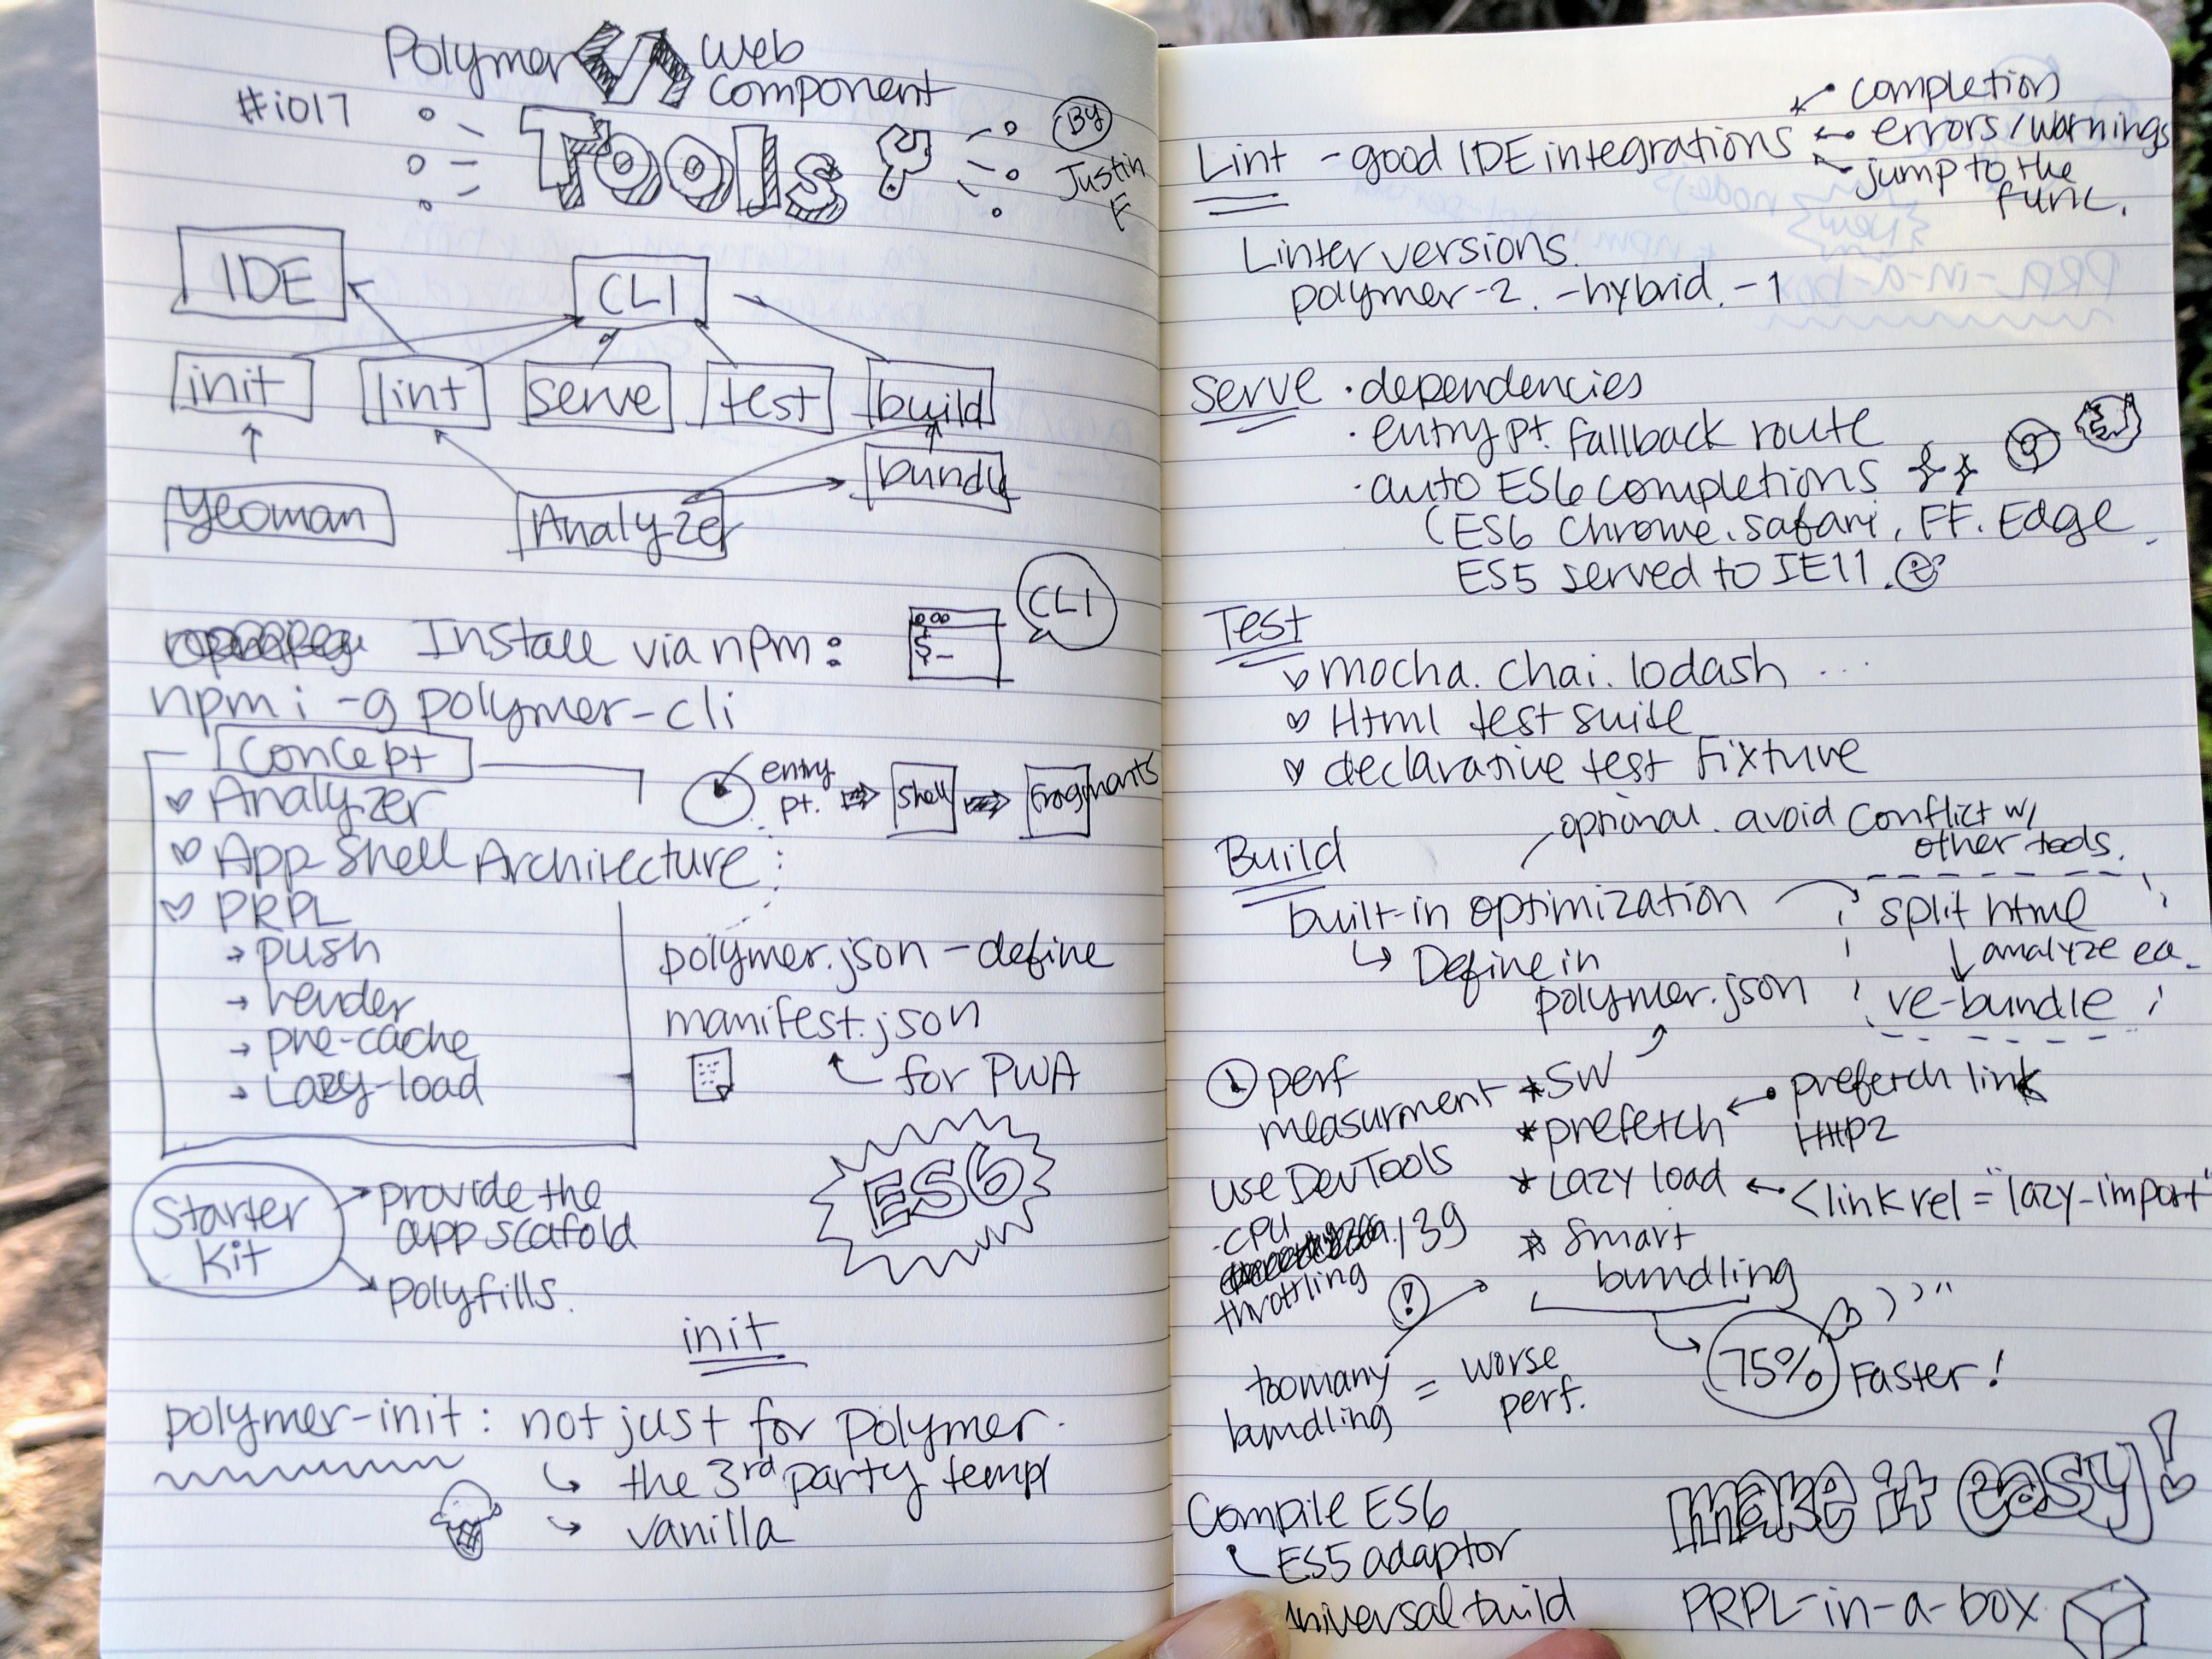 Polymer </> Web Component
#io17
Tools
By
Justin F
IDE
CLI
init
lint
serve
test
build
bundle
yeoman
Analyzer
Install via npm:
$_
CLI
npm i -g polymer-cli
Concept
Analyzer
App Shell Architecture
PRPL
→ push
→ render
→ pre-cache
→ Lazy-load
entry pt.
Shell
Fragments
polymer.json - define
manifest.json
for PWA
Starter Kit
provide the
app scafold
polyfills.
ES6
init
polymer-init: not just for Polymer.
the 3rd party templ
vanilla
Lint - good IDE integrations
completion
errors/warnings
jump to the
func.
Linter versions.
polymer-2. -hybrid. -1
Serve · dependencies
· entry pt. fallback route
· auto ES6 completions
(ES6 Chrome, safari, FF. Edge
ES5 served to IE11.
Test
mocha. chai. lodash ...
Html test suite
declarative test fixture
Build
optional. avoid conflict w/
other tools.
built-in optimization
Define in
polymer.json
split html
analyze ea.
re-bundle
perf
measurment
use DevTools
-CPU
139
throttling
*SW
*prefetch
prefetch link
HTTP2
*Lazy load
<link rel="lazy-import"
* Smart
bundling
75% Faster!
!
too many
bundling
= worse
perf.
Compile ES6
ES5 adaptor
universal build
make it easy!
PRPL-in-a-box